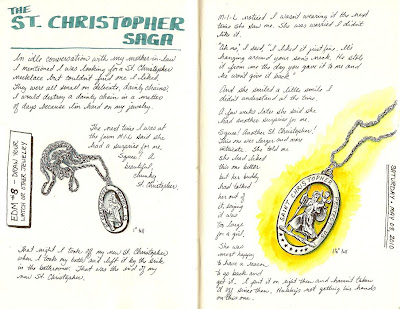 THE
ST. CHRISTOPHER
SAGA
In idle conversation with my mother-in-law
I mentioned I was looking for a St. Christopher
necklace but couldn't find one I liked.
They were all small on delicate, dainty chains.
I would destroy a dainty chain in a matter
of days because I'm hard on my jewelry.
The next time I was at
the farm M-I-L said she
had a surprise for me.
Squee! A
beautiful,
chunky
St. Christopher.
EDM #8 - DRAW YOUR
WATCH OR OTHER JEWELRY
1" tall
That night I took off my new St. Christopher
when I took my bath and left it by the sink
in the bathroom. That was the end of my
new St. Christopher.
M-I-L noticed I wasn't wearing it the next
time she saw me. She was worried I didn't
like it.
"Oh no," I said, "I liked it just fine. It's
hanging around your son's neck. He stole
it from me the day you gave it to me and
he won't give it back."
And she smiled a little smile I
didn't understand at the time.
A few weeks later she said she
had another surprise for me.
Squee! Another St. Christopher!
This one was larger and more
intricate. She told me
she had liked
this one better
but her buddy
had talked
her out of
it saying
it was
too large
for a girl.
She was
most happy
to have a reason
to go back and
get it. I put it on right then and haven't taken
it off since then. Hubby's not getting his hands
on this one.
SAINT CHRISTOPHER
1½" tall
SATURDAY - MAY 29, 2010